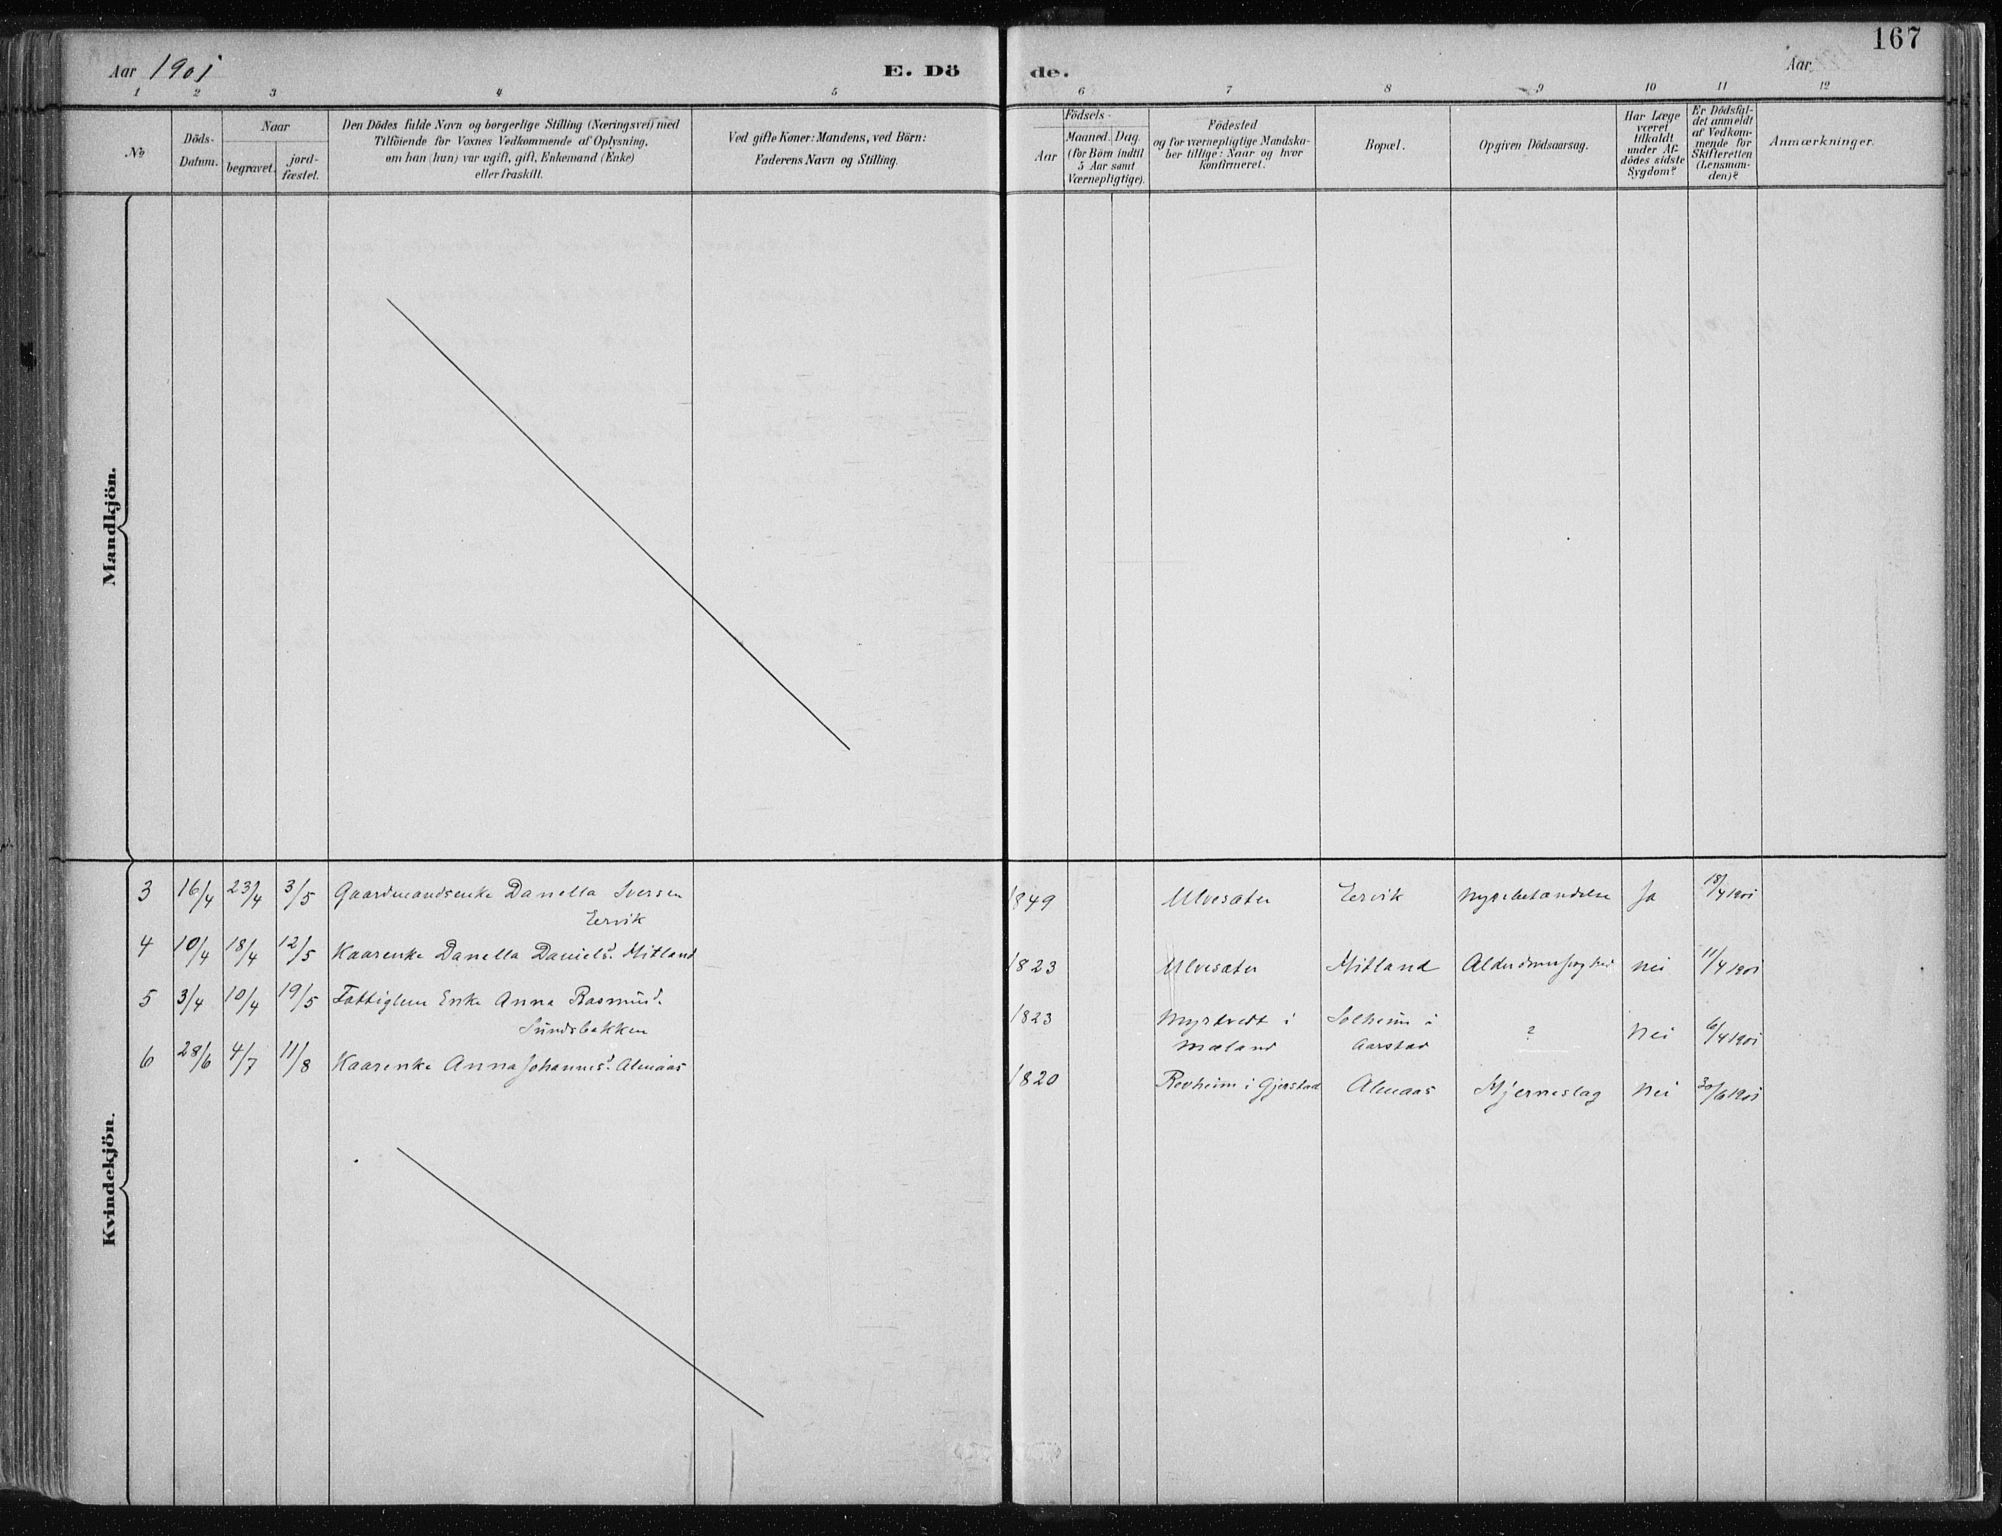 167
Aar 1901 E. Dö de. Aar
1 2 3 4 5 6 7 8 9 10 11 12
No
Döds-Datum.
Naar
begravet.
jord-fæstet.
Den Dödes fulde Navn og borgerlige Stilling (Næringsvei) med
Tilföiende for Voxnes Vedkommende af Oplysning,
om han (hun) var ugift, gift, Enkemand (Enke)
eller fraskilt.
Ved gifte Koner: Mandens, ved Börn:
Faderens Navn og Stilling.
Födsels-
Aar
Maaned. Dag.
(for Börn indtil
5 Aar samt
Værnepligtige).
Födested
og for værnepligtige Mandska-
ber tillige: Naar og hvor
Konfirmeret.
Bopæl.
Opgiven Dödsaarsag.
Har Læge
været
tilkaldt
under Af-
dödes sidste
Sygdom?
Er Dödsfal-
det anmeldt
af Vedkom-
mende for
Skifteretten
(Lensman-
den)?
Anmærkninger.
Mandkjön.
Kvindekjön.
3 16/4 23/4 3/5 Gaardmandsenke Danella Iversen 1849 Ulvesæter Eervik Nyrebetændelse Ja 18/4 1901
Eervik
4 10/4 18/4 12/5 Kaarenke Danella Danielsd. Mitland 1823 Ulvesæter Mitland nei 11/4 1901
5 3/4 10/4 19/5 Fattiglem Enke Anna Rasmusd. 1823 Myrtvedt i Solheim i ? Nei 6/4 1901
Sundsbakken Mæland Aarstad
6 28/6 4/7 11/8 Kaarenke Anna Johannesd. Almaas 1820 Revheim i Gjerstad Almaas Hjerneslag Nei 30/6 1901